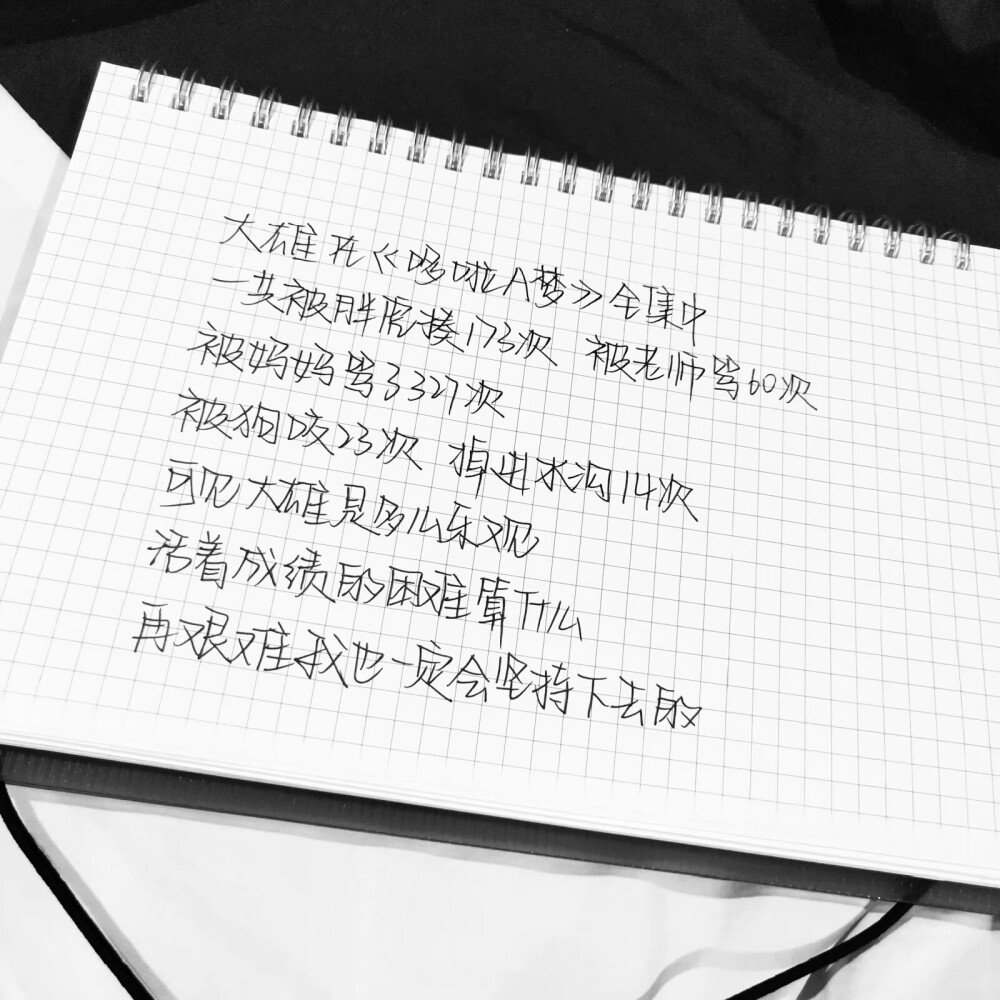 大雄在《哆啦A梦》全集中
一共被胖虎揍173次 被老师骂60次
被妈妈骂3327次
被狗咬23次 掉进水沟14次
可见大雄是多么乐观
活着成绩的困难算什么
再艰难我也一定会坚持下去的